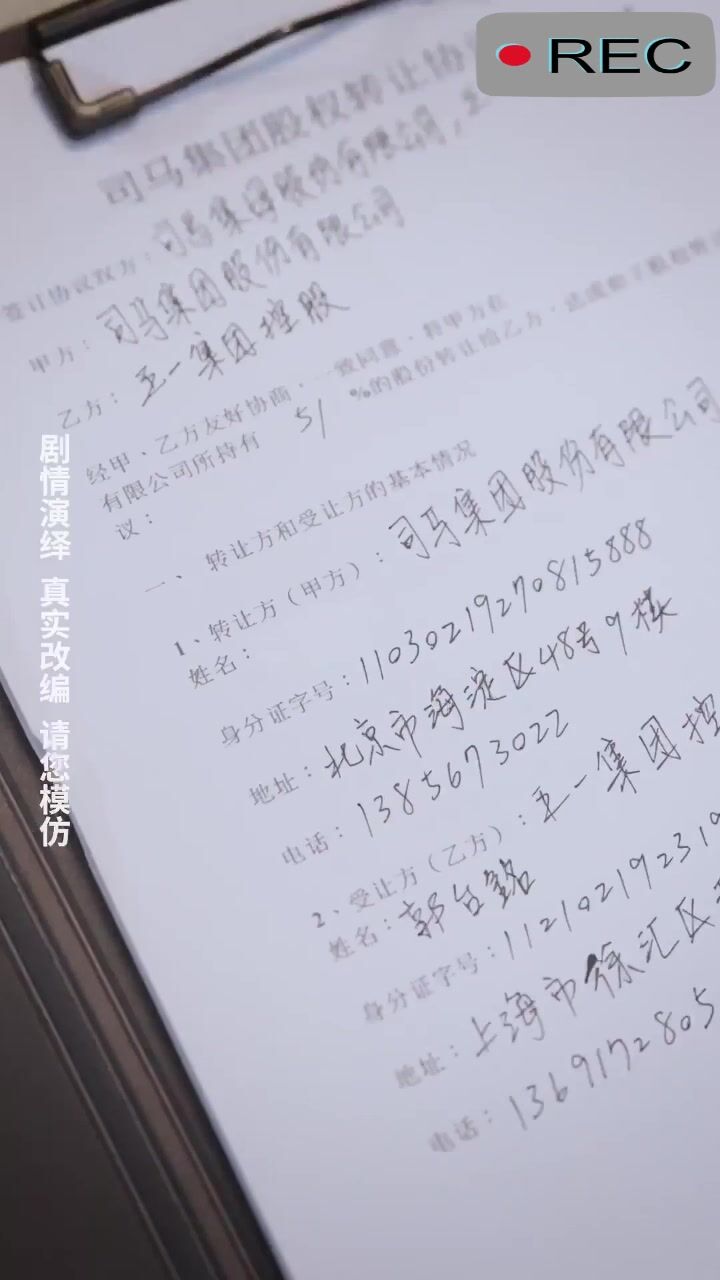 REC
司马集团股权转让协
签订协议双方：司马集团股份有限公司，
甲方：司马集团股份有限公司
乙方：王一集团控股
经甲、乙方友好协商，一致同意，将甲方在
有限公司所持有 51 %的股份转让给乙方，达成如下股权转让
议：
一、 转让方和受让方的基本情况
1、转让方（甲方）：司马集团股份有限公司
姓名：
身分证字号：11030219270815888
地址：北京市海淀区48号9楼
电话：1385673022
2、受让方（乙方）：王一集团控
姓名：郭台铭
身分证字号：112102192319
地址：上海市徐汇区
电话：1369172805
剧情演绎 真实改编 请您模仿